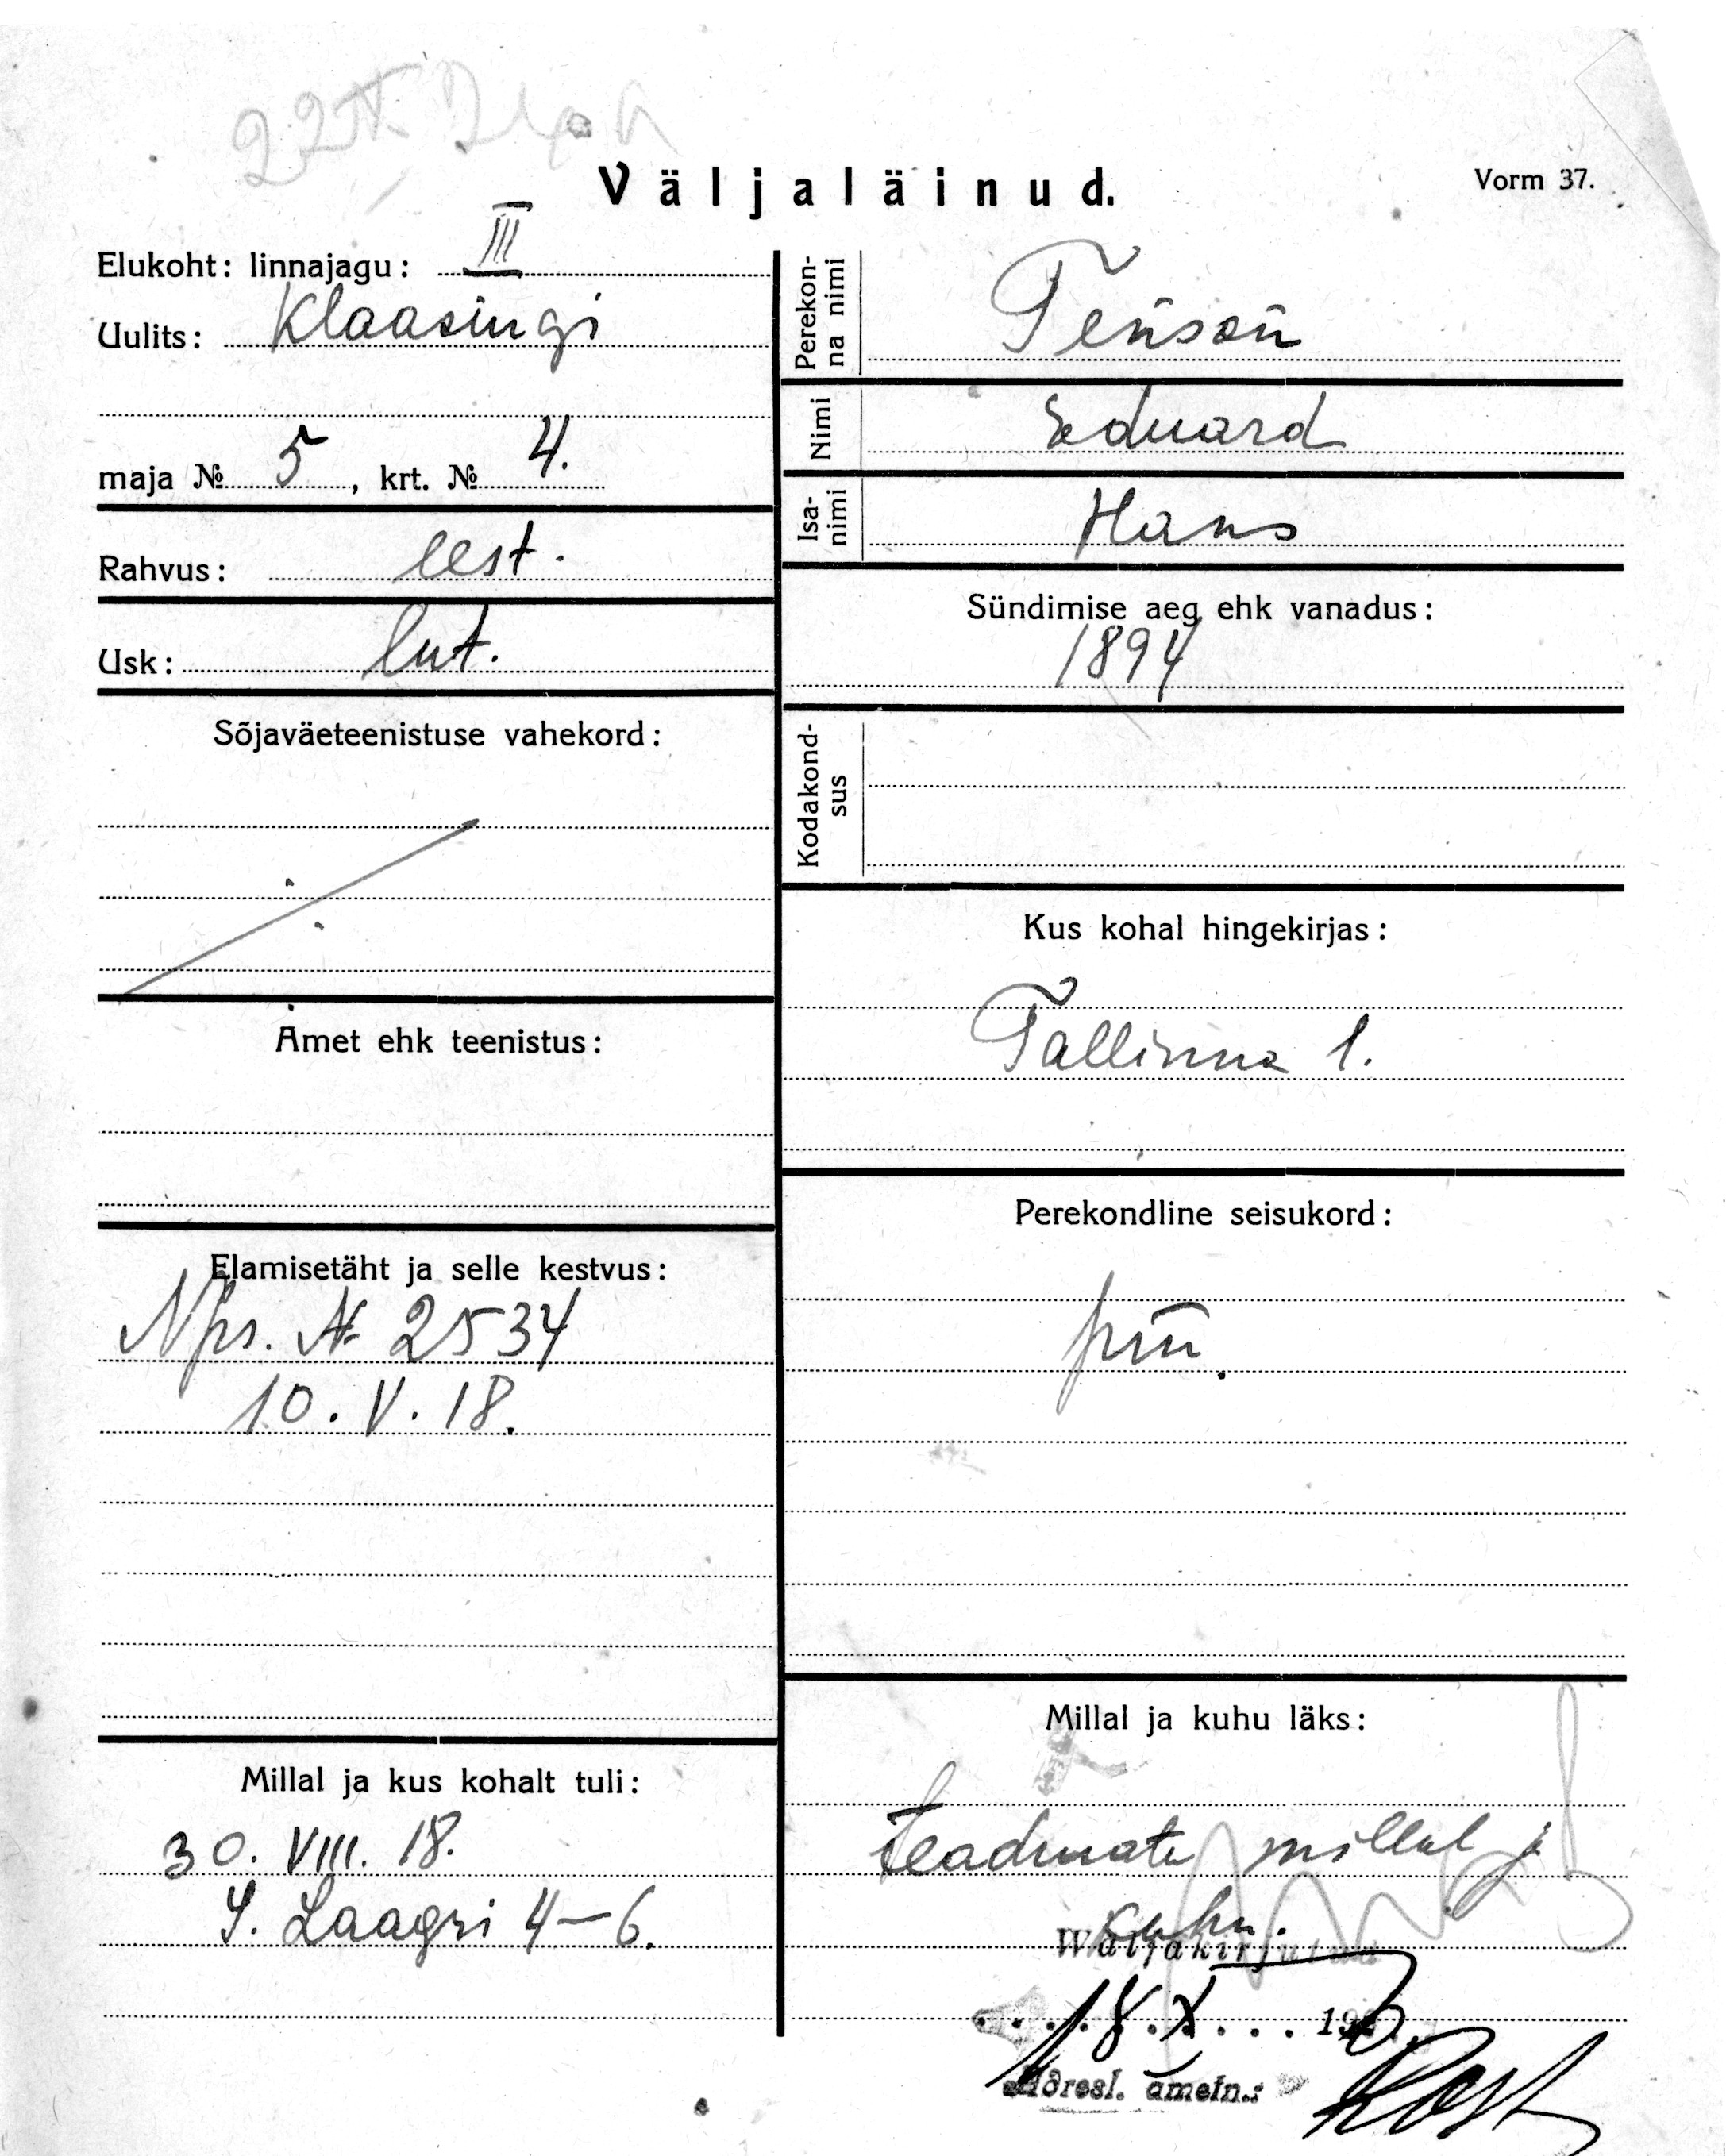 Väljaläinud.
Vorm 37.
Elukoht: linnajagu: III
Uulits: Klaasingi
maja № 5, krt. № 4.
Rahvus: eest.
Usk: lut.
Sõjaväeteenistuse vahekord:
Amet ehk teenistus:
Elamisetäht ja selle kestvus:
Nps. № 2534
10. V. 18.
Millal ja kus kohalt tuli:
30. VIII. 18.
S. Laagri 4–6.
Perekonna nimi
Tenson
Nimi
Eduard
Isanimi
Hans
Sündimise aeg ehk vanadus:
1894
Kodakondsus
Kus kohal hingekirjas:
Tallinna l.
Perekondline seisukord:
Millal ja kuhu läks:
teadmata millal ja
kuhu.
Wäljakirjutud
18. X 192
Adresl. ametn.: